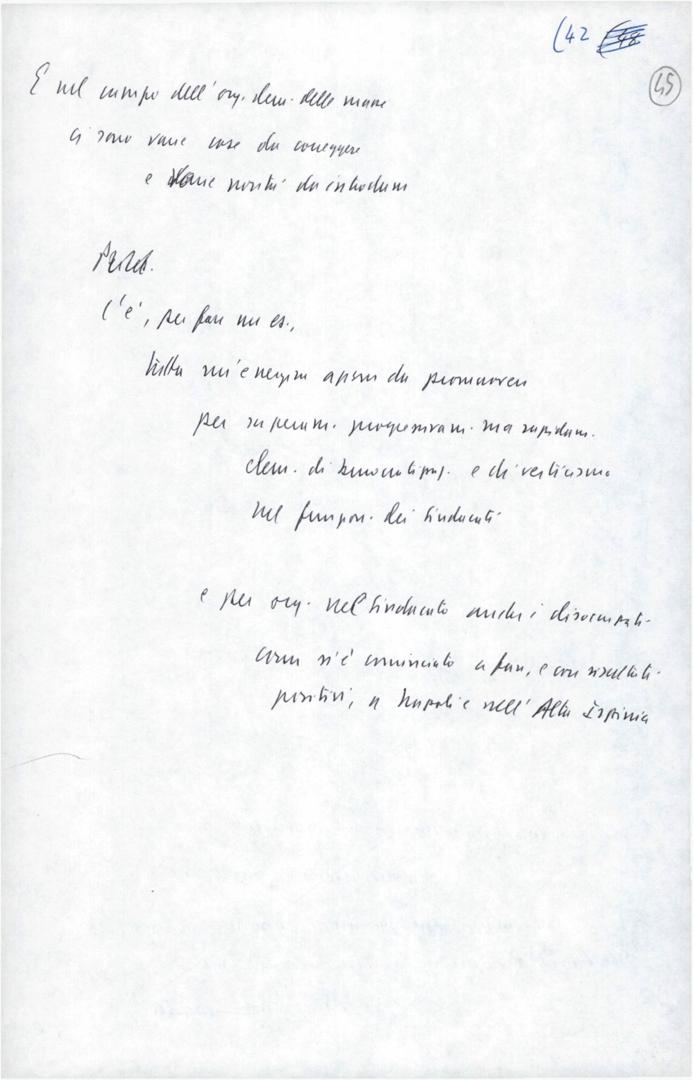 (42
45
E nel campo dell'org. dem. delle masse
ci sono varie cose da correggere
e varie novità da introdurre
C'è, per fare un es.,
tutta un'energica azione da promuovere
per superam. progressivam. ma rapidam.
elem. di burocratizzaz. e di verticismo
nel funzion. dei sindacati
e per org. nel sindacato anche i disoccupati
come s'è cominciato a fare, e con risultati
positivi, a Napoli e nell'Alta Irpinia